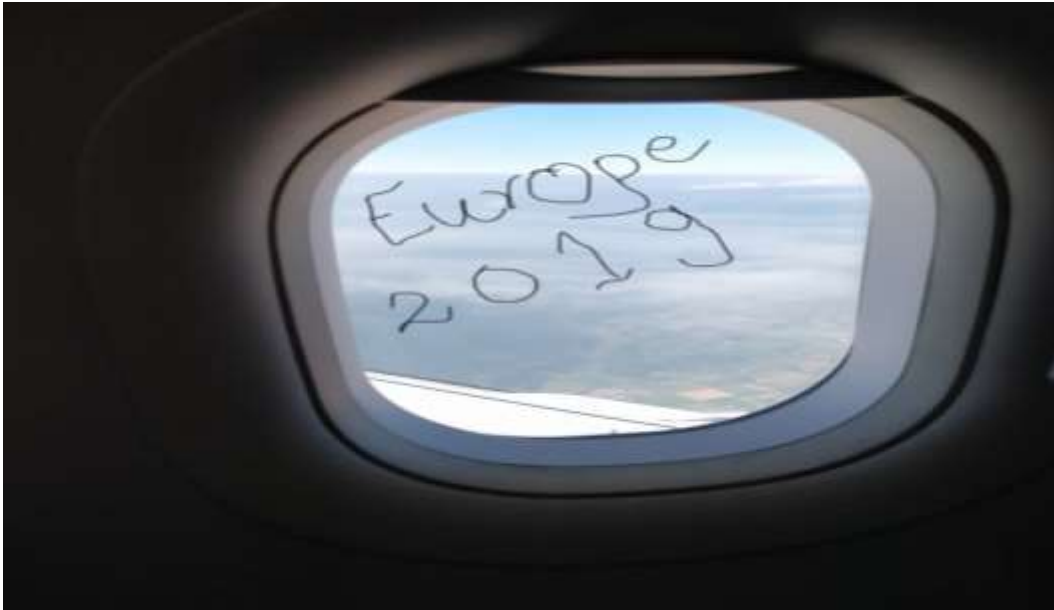 Europe
2019